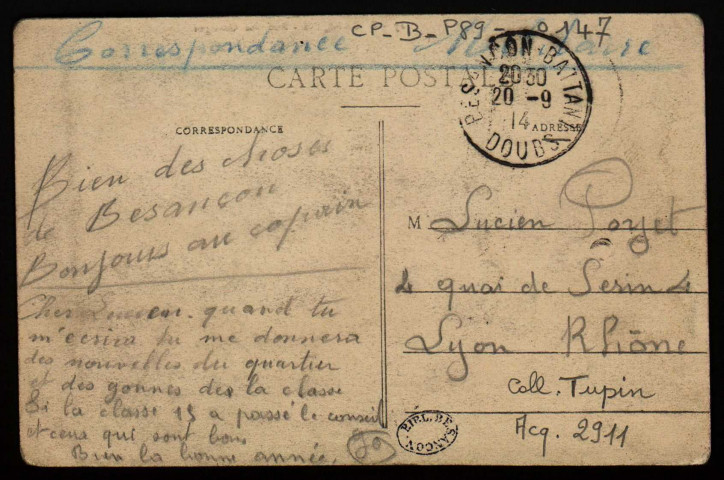 CP-B-P89- 0147
Correspondance Militaire
CARTE POSTALE
BESANÇON-BATTANT
20 30
20 -9
14
DOUBS
CORRESPONDANCE
ADRESSE
Bien des choses
de Besançon
Bonjour au copain
Cher Lucien. quand tu
m'ecrira tu me donnera
des nouvelles du quartier
et des gonnes de la classe
Si la classe 15 a passé le conseil
et ceux qui sont bons
Bien la bonne année.
M Lucien
4 quai de Serin 4
Lyon Rhône
Coll. Tupin
Acq. 2911
BIBL. BESANÇON